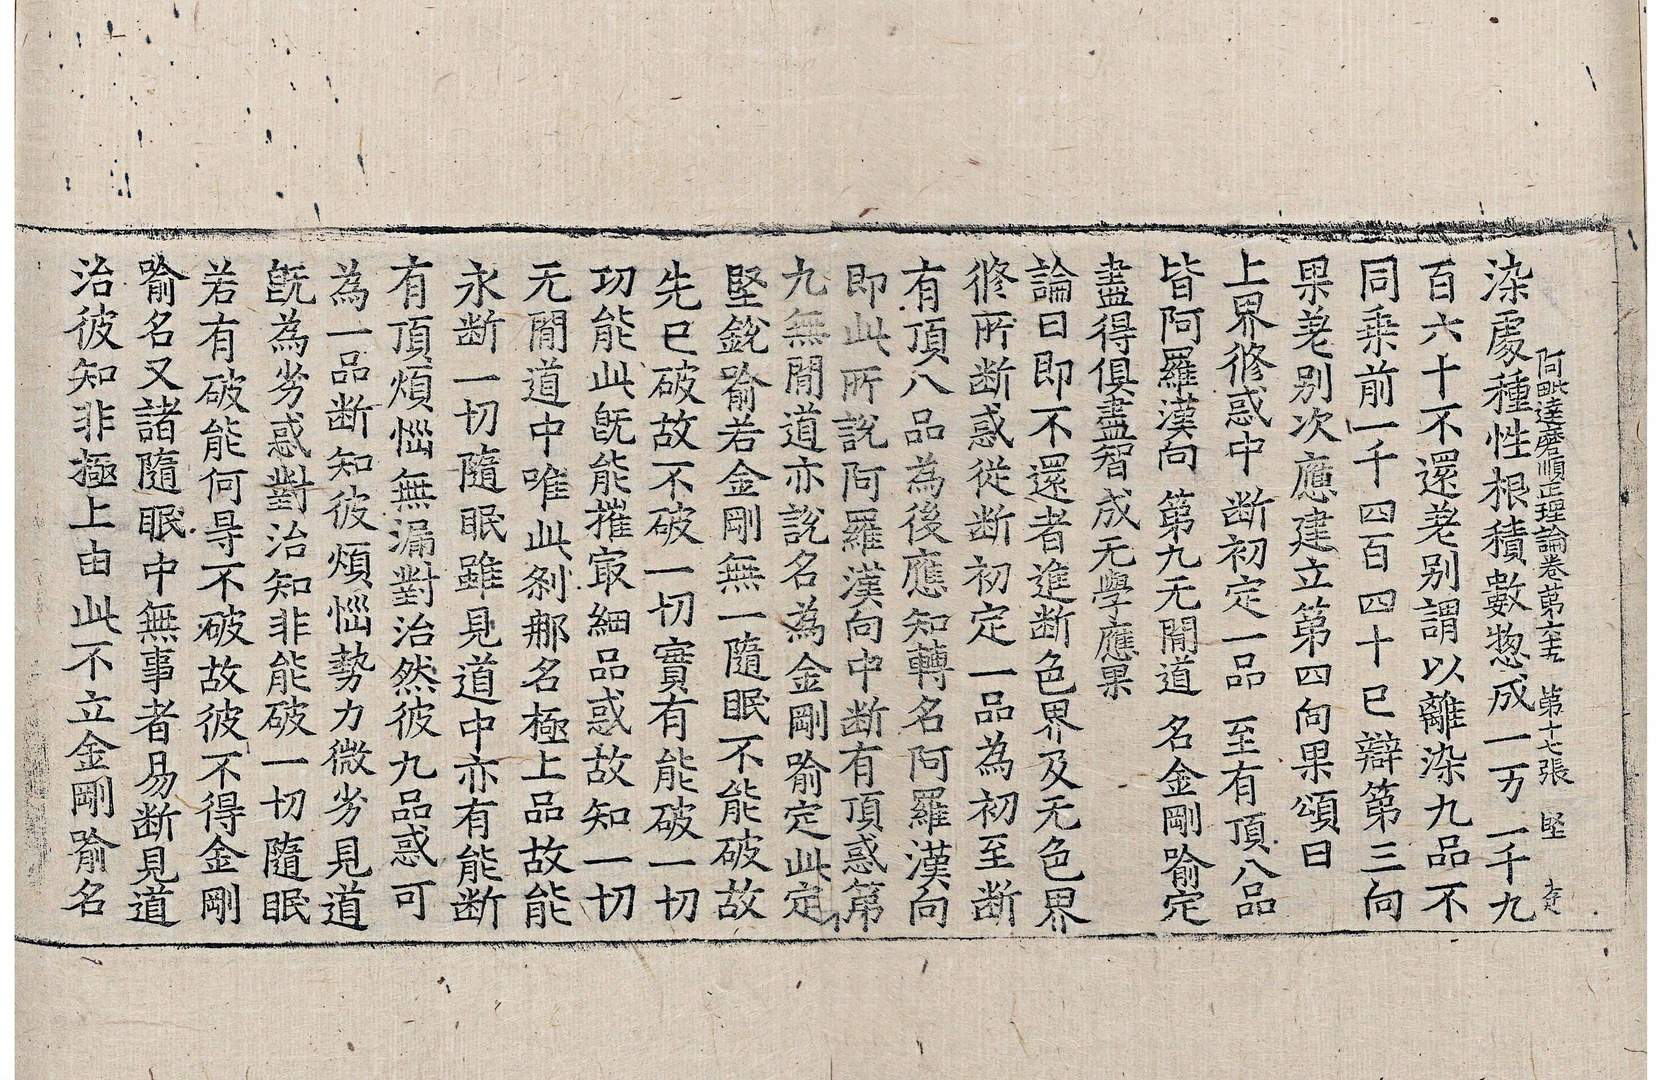 阿毗達磨順正理論卷第六十五 第十七張 堅
染處種性根積數惣成一万一千九
百六十不還差别謂以離染九品不
同乗前一千四百四十已辯第三向
果差别次應建立第四向果頌曰
上界修惑中 断初定一品 至有頂八品
皆阿羅漢向 第九无閒道 名金剛喻定
盡得俱盡智 成无學應果
論曰即不還者進断色界及无色界
修所断惑從断初定一品為初至断
有頂八品為後應知轉名阿羅漢向
即此所說阿羅漢向中断有頂惑第
九無閒道亦說名為金剛喻定此定
堅銳喻若金剛無一隨眠不能破故
先已破故不破一切實有能破一切
功能此旣能摧㝡細品惑故知一切
无閒道中唯此剎那名極上品故能
永断一切隨眠雖見道中亦有能断
有頂煩惱無漏對治然彼九品惑可
為一品断知彼煩惱勢力微劣見道
旣為劣惑對治知非能破一切隨眠
若有破能何㝵不破故彼不得金剛
喻名又諸隨眠中無事者易断見道
治彼知非極上由此不立金剛喻名